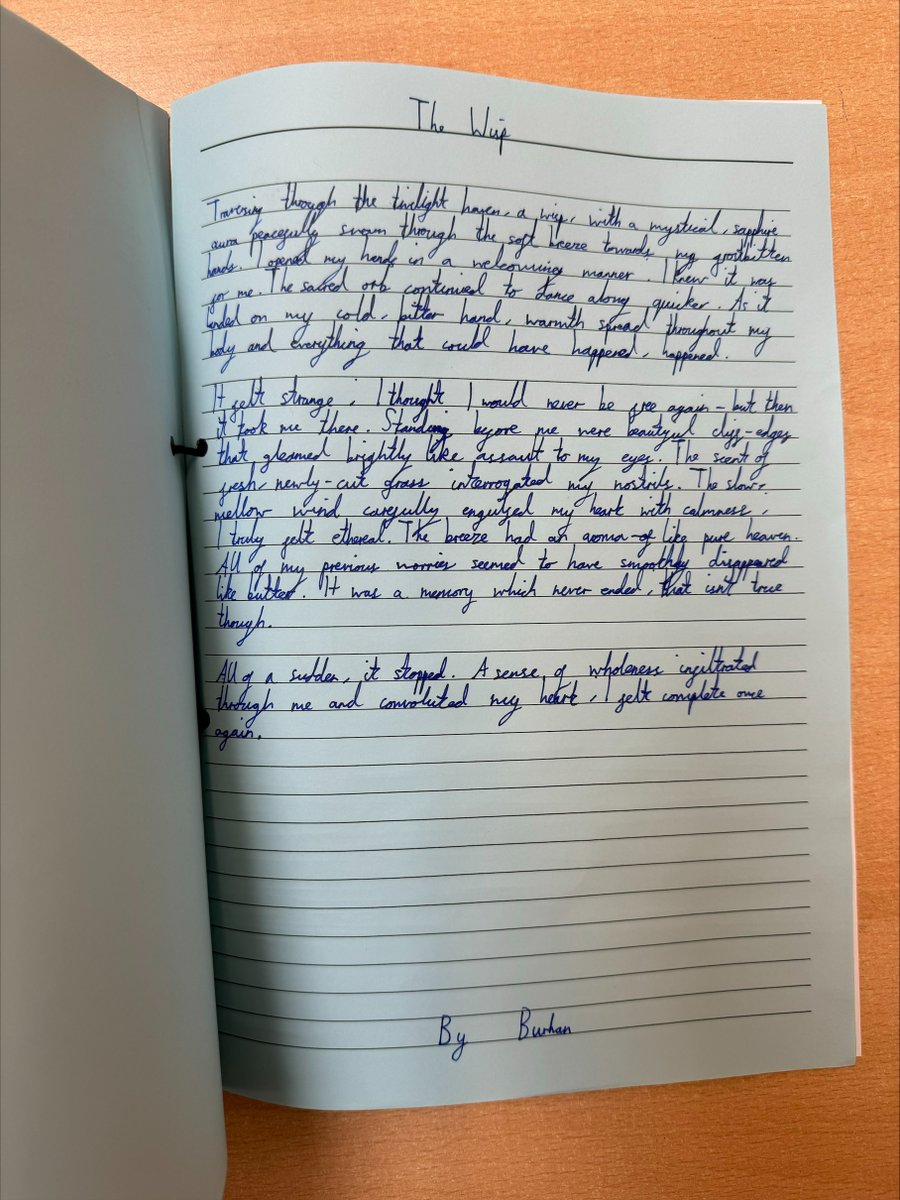 The Wisp
Traversing through the twilight haven, a wisp, with a mystical, sapphire
aura peacefully swam through the soft breeze towards my frostbitten
hands. I opened my hands in a welcoming manner. I knew it was
for me. The sacred orb continued to dance along quicker. As it
landed on my cold, bitter hand, warmth spread throughout my
body and everything that could have happened, happened.
It felt strange, I thought I would never be free again - but then
it took me there. Standing before me were beautiful cliff-edges
that gleamed brightly like assault to my eyes. The scent of
fresh, newly-cut grass interrogated my nostrils. The slow,
mellow wind carefully engulfed my heart with calmness,
I truly felt ethereal. The breeze had an aroma-of like pure heaven.
All of my previous worries seemed to have smoothly disappeared
like butter. It was a memory which never ended, that isn't true
though.
All of a sudden, it stopped. A sense of wholeness infiltrated
through me and convoluted my heart, I felt complete once
again.
By Burhan